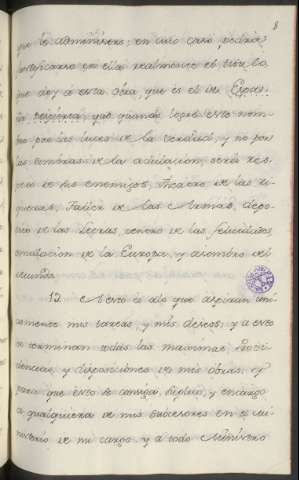 8
que lo administrare; en cuio caso podria
justificarse con ella realmente el titulo
que doy à esta obra, que es el de: España
despierta, pues quando logre este nom-
bre por las luces de la verdad, y no por
las sombras de la adulacion, serà res-
peto de sus enemigos, theatro de las ri-
quezas, Taller de las Armas, depo-
sito de las Letras, centro de las felicidades,
emulacion de la Europa, y asombro del
mundo.
12. A esto es alo que aspiran uni-
camente mis tareas, y mis deseos, y a esto
se terminan todas las maximas, Provi-
dencias, y disposiciones de mis obras. Y
para que esto se consiga, suplico, y encargo
a qualquiera de mis subcesores en el mi-
nisterio de mi cargo, y a todo Ministro